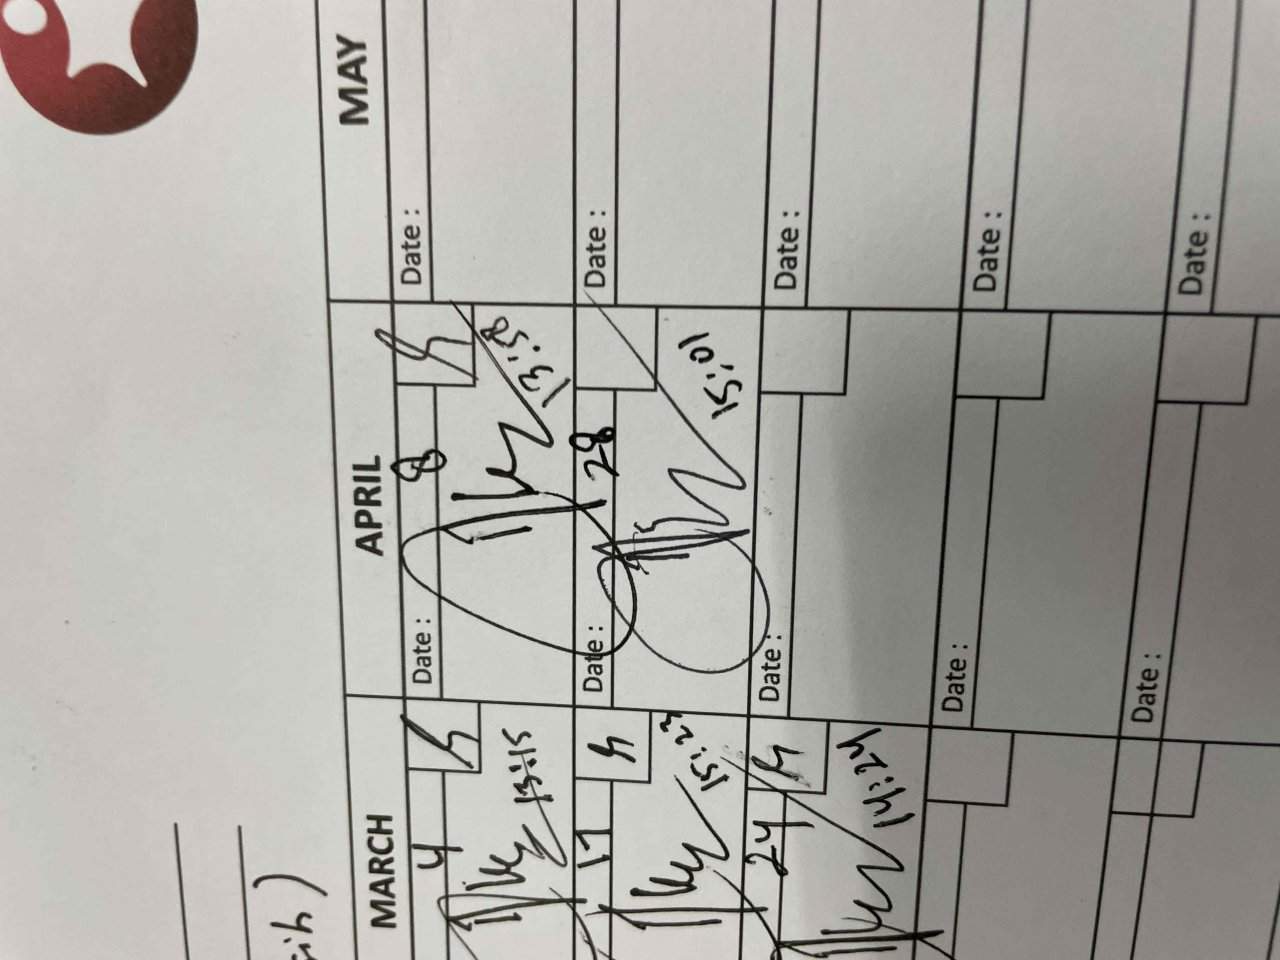 sih)
MARCH APRIL MAY
Date: 8 Date:
4
13:15 13:58
Date: 28 Date:
17
15:23 15:01
Date: Date:
24
14:24
Date: Date:
Date: Date: